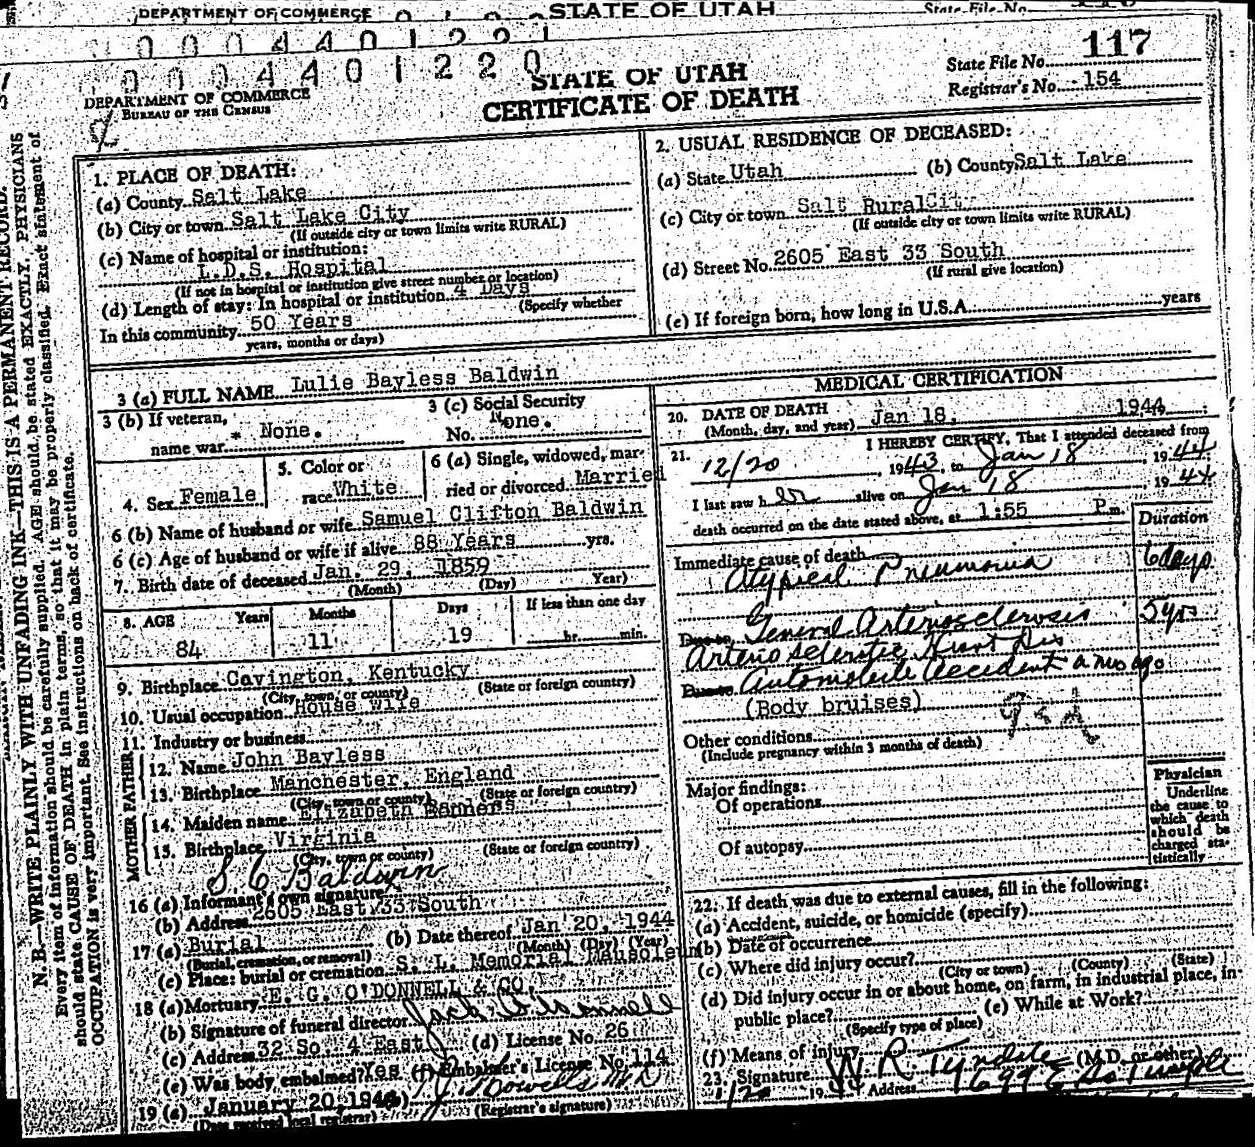 DEPARTMENT OF COMMERCE STATE OF UTAH State File No.
0 0 0 4 4 0 1 2 2 1
0 0 0 4 4 0 1 2 2 0
STATE OF UTAH
CERTIFICATE OF DEATH
DEPARTMENT OF COMMERCE
BUREAU OF THE CENSUS
State File No. 117
Registrar's No. 154
N. B.—WRITE PLAINLY WITH UNFADING INK—THIS IS A PERMANENT RECORD.
Every item of information should be carefully supplied. AGE should be stated EXACTLY, PHYSICIANS
should state CAUSE OF DEATH in plain terms, so that it may be properly classified. Exact statement of
OCCUPATION is very important. See instructions on back of certificate.
1. PLACE OF DEATH:
(a) County Salt Lake
(b) City or town Salt Lake City
(If outside city or town limits write RURAL)
(c) Name of hospital or institution:
L.D.S. Hospital
(If not in hospital or institution give street number or location)
(d) Length of stay: In hospital or institution 4 Days
(Specify whether
In this community 50 Years
years, months or days)
2. USUAL RESIDENCE OF DECEASED:
(a) State Utah (b) County Salt Lake
(c) City or town Salt Rural City
(If outside city or town limits write RURAL)
(d) Street No. 2605 East 33 South
(If rural give location)
(e) If foreign born, how long in U.S.A. years
3 (a) FULL NAME Lulie Bayless Baldwin
3 (b) If veteran, 3 (c) Social Security
name war None. No. None.
4. Sex Female 5. Color or race White 6 (a) Single, widowed, married or divorced Married
6 (b) Name of husband or wife Samuel Clifton Baldwin
6 (c) Age of husband or wife if alive 88 Years yrs.
7. Birth date of deceased Jan. 29, 1859
(Month) (Day) Year)
8. AGE Years Months Days If less than one day
84 11 19 hr. min.
9. Birthplace Covington, Kentucky
(City, town, or county) (State or foreign country)
10. Usual occupation House wife
11. Industry or business
FATHER
12. Name John Bayless
13. Birthplace Manchester, England
(City, town or county) (State or foreign country)
MOTHER
14. Maiden name Elizabeth
15. Birthplace Virginia
(City, town or county) (State or foreign country)
S C Baldwin
16 (a) Informant's own signature
(b) Address 2605 East 33 South
17 (a) Burial (b) Date thereof Jan 20, 1944
(Burial, cremation, or removal) (Month) (Day) (Year)
(c) Place: burial or cremation S. L. Memorial Mausoleum
18 (a) Mortuary E. G. O'DONNELL & CO.
(b) Signature of funeral director Jack O'Donnell
(c) Address 32 So. 4 East (d) License No. 26
(e) Was body embalmed? Yes (f) Embalmer's License No. 114
19 (a) January 20, 1944 (b)
(Date received local registrar) (Registrar's signature)
MEDICAL CERTIFICATION
20. DATE OF DEATH
(Month, day, and year) Jan 18, 1944
21. I HEREBY CERTIFY, That I attended deceased from
12/20, 1943, to Jan 18, 1944
I last saw her alive on Jan 18 1944
death occurred on the date stated above, at 1:55 P.m.
Duration
Immediate cause of death
Atypical Pneumonia 6 days
Due to General Arteriosclerosis 5 yrs
Arteriosclerotic Heart Dis
Due to Automobile Accident a mo ago
(Body bruises)
Other conditions
(Include pregnancy within 3 months of death)
Major findings:
Of operations
Of autopsy
Physician
Underline
the cause to
which death
should be
charged sta-
tistically
22. If death was due to external causes, fill in the following:
(a) Accident, suicide, or homicide (specify)
(b) Date of occurrence
(c) Where did injury occur?
(City or town) (County) (State)
(d) Did injury occur in or about home, on farm, in industrial place, in
public place? (e) While at Work?
(Specify type of place)
(f) Means of injury
23. Signature W. R. Tyndale (M.D. or other)
1/20 1944 Address 699 E So Temple